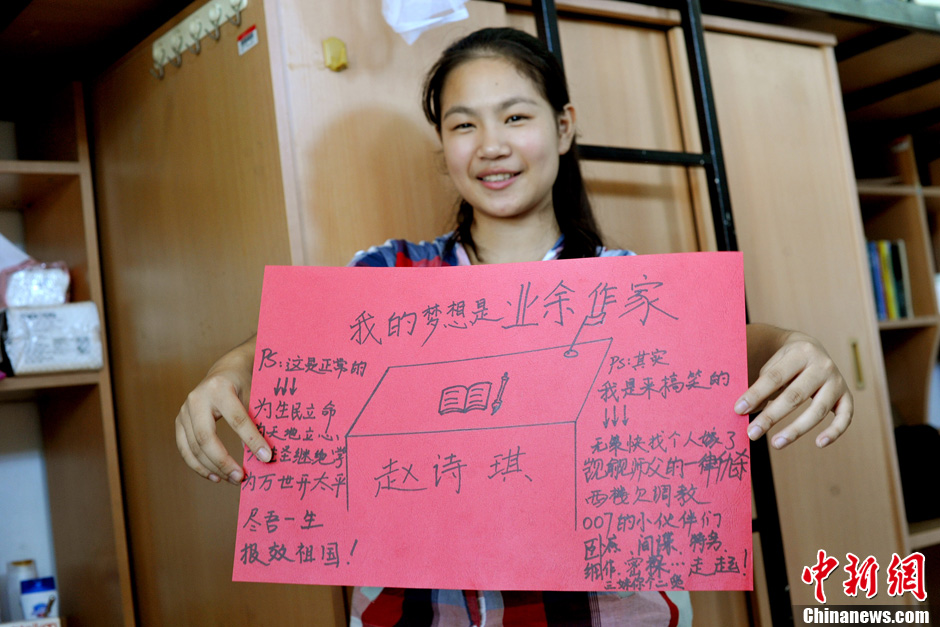 我的梦想是业余作家
PS:这是正常的
↓↓↓
为生民立命
为天地立心,
圣继绝学
为万世开太平
尽吾一生
报效祖国!
赵诗琪
PS:其实
我是来搞笑的
↓↓↓
无棠快找个人嫁了
觊觎师父的一律仗杀
西楼欠调教
007的小伙伴们
卧底、间谍、特务、
细作、密探…走起!
中新网
Chinanews.com